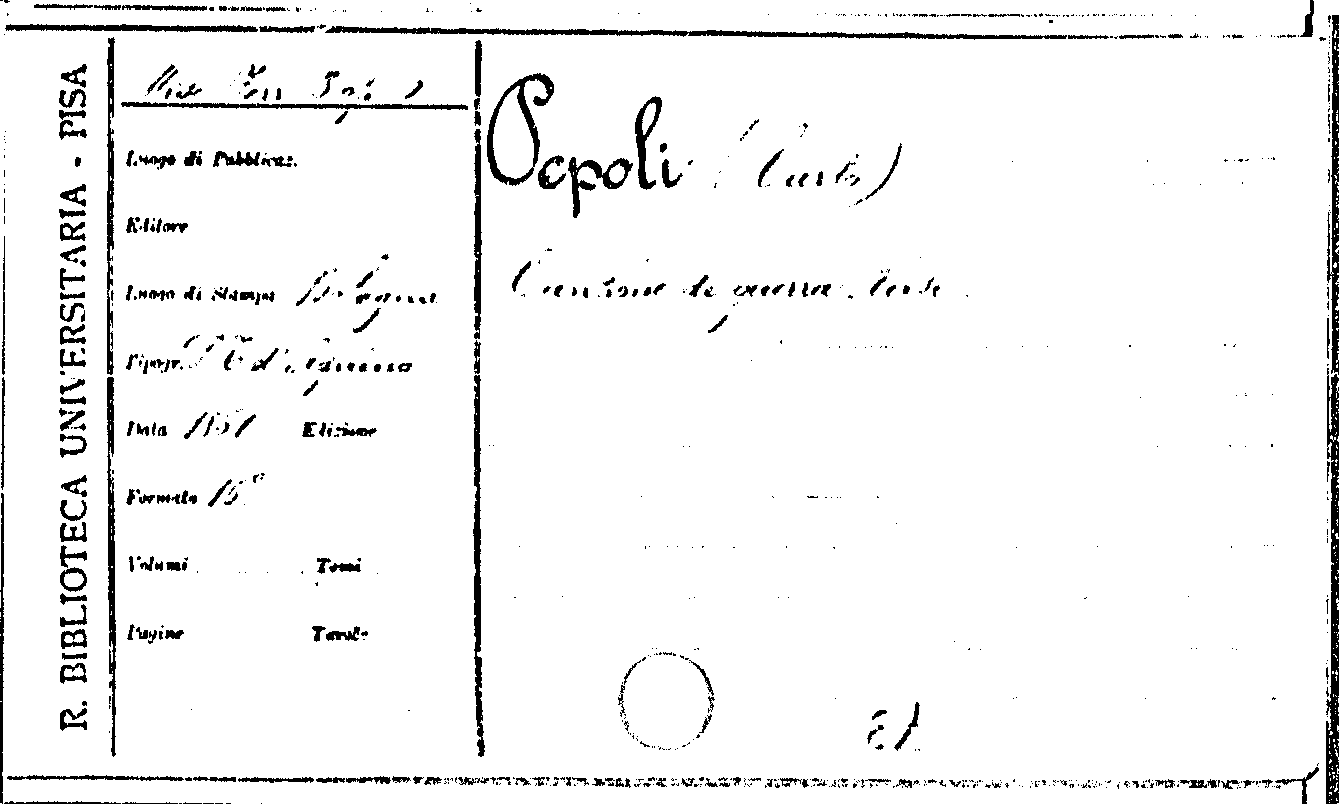 R. BIBLIOTECA UNIVERSITARIA - PISA
Luogo di Pubblicaz.
Editore
Luogo di Stampa Bologna
Tipogr.
Data 1851 Edizione
Formato 16°
Volumi Tomi
Pagine Tavole
Pepoli (Carlo)
Canzone di guerra